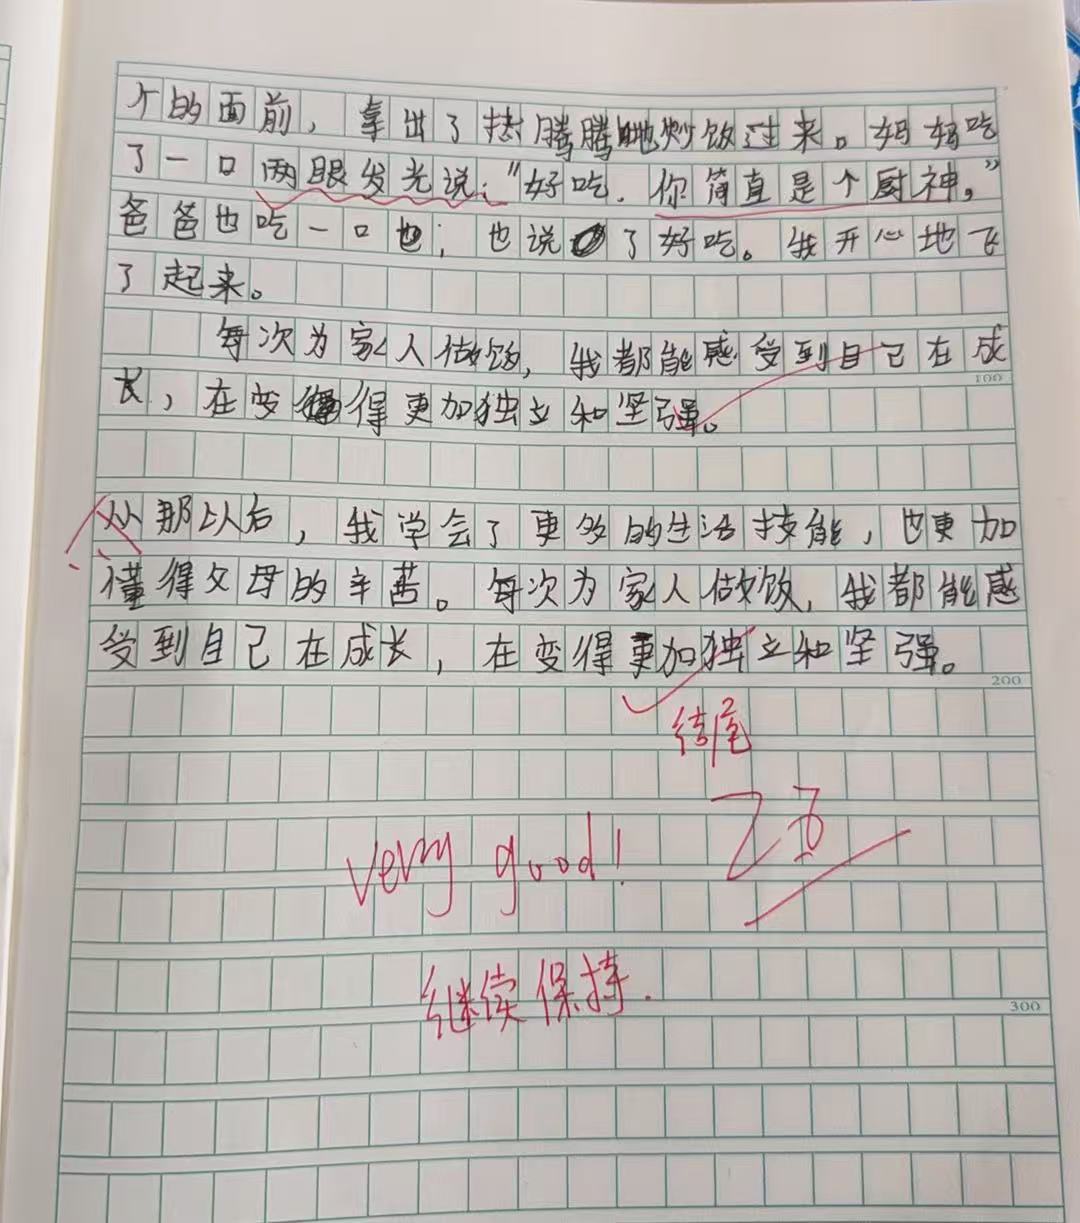 个的面前，拿出了热腾腾地炒饭过来。妈妈吃
了一口两眼发光说："好吃．你简直是个厨神，"
爸爸也吃一口也，也说了好吃。我开心地飞
了起来。
每次为家人做饭，我都能感受到自己在成
100
长，在变得更加独立和坚强。
从那以后，我学会了更多的生活技能，也更加
懂得父母的辛苦。每次为家人做饭，我都能感
受到自己在成长，在变得更加独立和坚强。
200
结尾
very good!
继续保持.
300